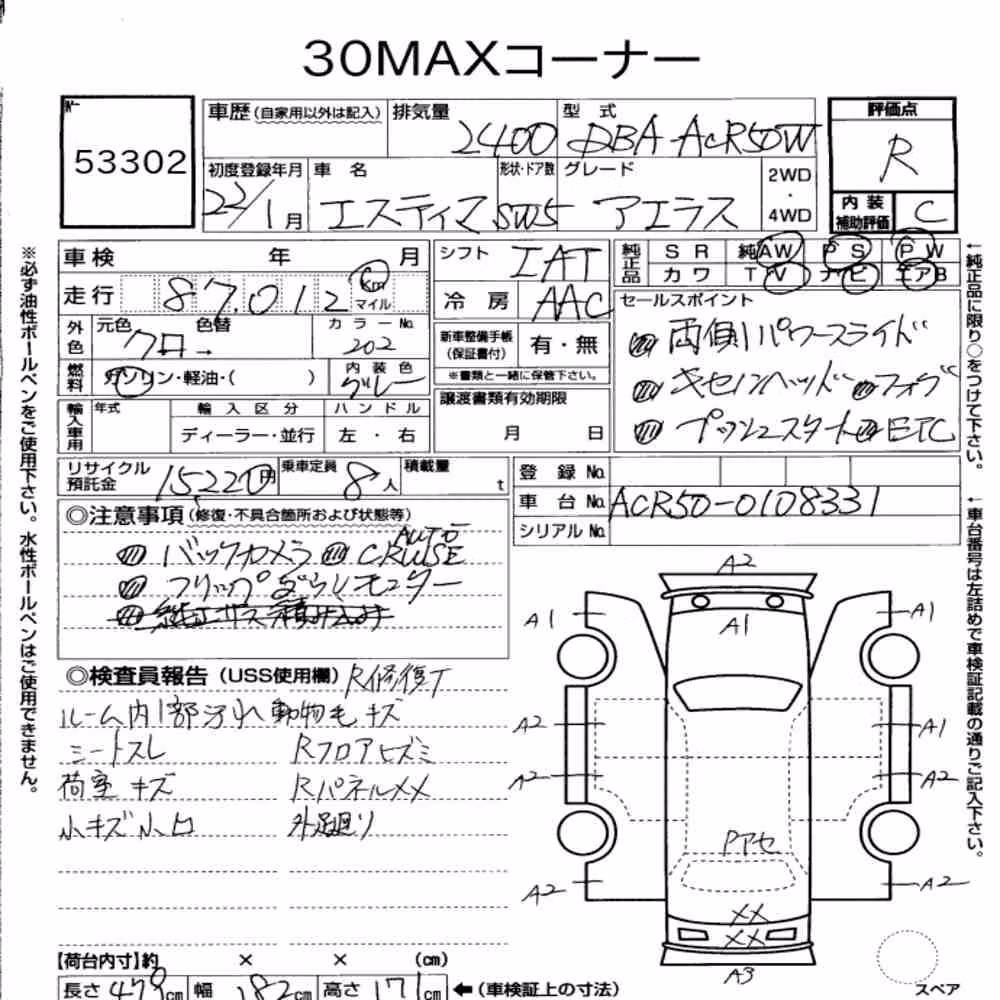 30MAXコーナー
53302
車歴 (自家用以外は記入) 排気量 2400 型式 DBA-ACR50W
評価点 R
初度登録年月 22/1月 車名 エスティマ 形状・ドア数 SW5 グレード アエラス 2WD・4WD
内装補助評価 C
車検 年 月
シフト IAT
純正品 SR 純AW PS PW
カワ TV ナビ エアB
走行 87,012 Km マイル
冷房 AAC
セールスポイント
両側パワースライド
キセノンヘッド フォグ
プッシュスタート ETC
外色 元色 クロ 色替 → カラーNo. 202
新車整備手帳 (保証書付) 有・無
※書類と一緒に保管下さい。
燃料 ガソリン・軽油・( ) 内装色 グレー
輸入車用 年式 輸入区分 ハンドル
ディーラー・並行 左・右
譲渡書類有効期限
月 日
リサイクル預託金 15220円 乗車定員 8人 積載量 t
登録No.
車台No. ACR50-0108331
シリアルNo.
◎注意事項 (修復・不具合箇所および状態等)
バックカメラ AUTO CRUISE
フリップダウンモニター
◎検査員報告 (USS使用欄) R修復丁
ルーム内1部汚れ 動物毛 キズ
シートスレ Rフロアヒズミ
荷室キズ RパネルXX
小キズ小凹 外足廻り
A2
A1
A1
A1
A2
A1
A2
A2
Pアセ
A2
A2
XX
XX
A3
スペア
【荷台内寸】約 × × (cm)
長さ 479cm 幅 182cm 高さ 171cm ←(車検証上の寸法)
※必ず油性ボールペンをご使用下さい。水性ボールペンはご使用できません。
←純正品に限り○をつけて下さい。
←車台番号は左詰めで車検証記載の通りご記入下さい。